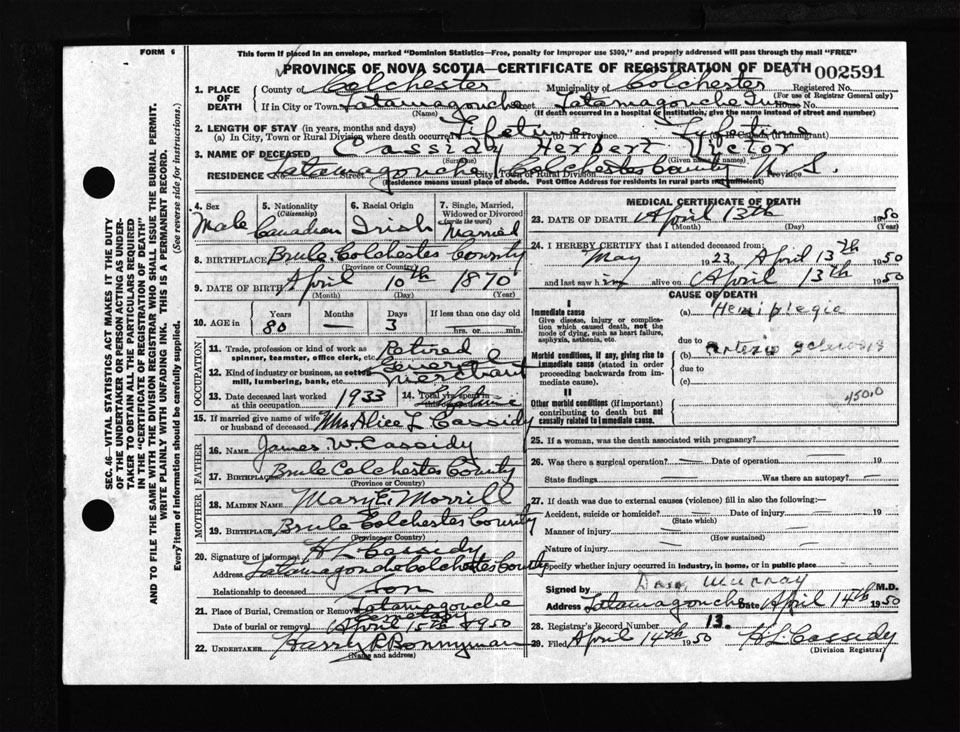 FORM 6
This form if placed in an envelope, marked "Dominion Statistics—Free, penalty for improper use $300," and properly addressed will pass through the mail "FREE"
PROVINCE OF NOVA SCOTIA—CERTIFICATE OF REGISTRATION OF DEATH
002591
1. PLACE OF DEATH
County of Colchester Municipality of Colchester Registered No.
(For use of Registrar General only)
If in City or Town Tatamagouche Street Tatamagouche House No.
(Name) (If death occurred in a hospital or institution, give the name instead of street and number)
2. LENGTH OF STAY (in years, months and days)
(a) In City, Town or Rural Division where death occurred Lifetime (b) In Province Lifetime (c) In Canada (if immigrant)
3. NAME OF DECEASED Cassidy Herbert Victor
(Surname) (Given name or names)
RESIDENCE Tatamagouche Street City, Town or Rural Division Colchester County Province N. S.
(Residence means usual place of abode. Post Office Address for residents in rural parts not sufficient)
4. Sex Male
5. Nationality (Citizenship) Canadian
6. Racial Origin Irish
7. Single, Married, Widowed or Divorced (write the word) Married
8. BIRTHPLACE Brule Colchester County
(Province or Country)
9. DATE OF BIRTH April 10th 1870
(Month) (Day) (Year)
10. AGE in Years 80 Months — Days 3 If less than one day old hrs. or min.
OCCUPATION
11. Trade, profession or kind of work as spinner, teamster, office clerk, etc. Retired
12. Kind of industry or business, as cotton mill, lumbering, bank, etc. General Merchant
13. Date deceased last worked at this occupation 1933 14. Total yrs. spent in this occupation Lifetime
15. If married give name of wife or husband of deceased Mrs Alice L Cassidy
FATHER
16. NAME James W. Cassidy
17. BIRTHPLACE Brule Colchester County
(Province or Country)
MOTHER
18. MAIDEN NAME Mary E. Morrill
19. BIRTHPLACE Brule Colchester County
(Province or Country)
20. Signature of informant H L Cassidy
Address Tatamagouche Colchester County
Relationship to deceased Son
21. Place of Burial, Cremation or Removal Tatamagouche Cemetery
Date of burial or removal April 15th 1950
22. UNDERTAKER Harry R Bonnyman
(Name and address)
MEDICAL CERTIFICATE OF DEATH
23. DATE OF DEATH April 13th 1950
(Month) (Day) (Year)
24. I HEREBY CERTIFY that I attended deceased from:
May 1923 to April 13th 1950
and last saw him alive on April 13th 1950
CAUSE OF DEATH
I
Immediate cause
Give disease, injury or complication which caused death, not the mode of dying, such as heart failure, asphyxia, asthenia, etc.
(a) Hemiplegia
due to
Morbid conditions, if any, giving rise to immediate cause (stated in order proceeding backwards from immediate cause).
(b) arterio sclerosis
due to
(c)
II
Other morbid conditions (if important) contributing to death but not causally related to immediate cause.
450.0
25. If a woman, was the death associated with pregnancy?
26. Was there a surgical operation? — Date of operation — 19
State findings Was there an autopsy? —
27. If death was due to external causes (violence) fill in also the following:—
Accident, suicide or homicide? — Date of injury — 19
(State which)
Manner of injury —
(How sustained)
Nature of injury —
Specify whether injury occurred in industry, in home, or in public place
Signed by Murray M.D.
Address Tatamagouche Date April 14th 1950
28. Registrar's Record Number 13.
29. Filed April 14th 1950 H L Cassidy
(Division Registrar)
SEC. 46—VITAL STATISTICS ACT MAKES IT THE DUTY
OF THE UNDERTAKER OR PERSON ACTING AS UNDER-
TAKER TO OBTAIN ALL THE PARTICULARS REQUIRED
IN THE "CERTIFICATE OF REGISTRATION OF DEATH"
AND TO FILE THE SAME WITH THE DIVISION REGISTRAR WHO SHALL ISSUE THE BURIAL PERMIT.
WRITE PLAINLY WITH UNFADING INK. THIS IS A PERMANENT RECORD.
Every item of information should be carefully supplied. (See reverse side for instructions.)